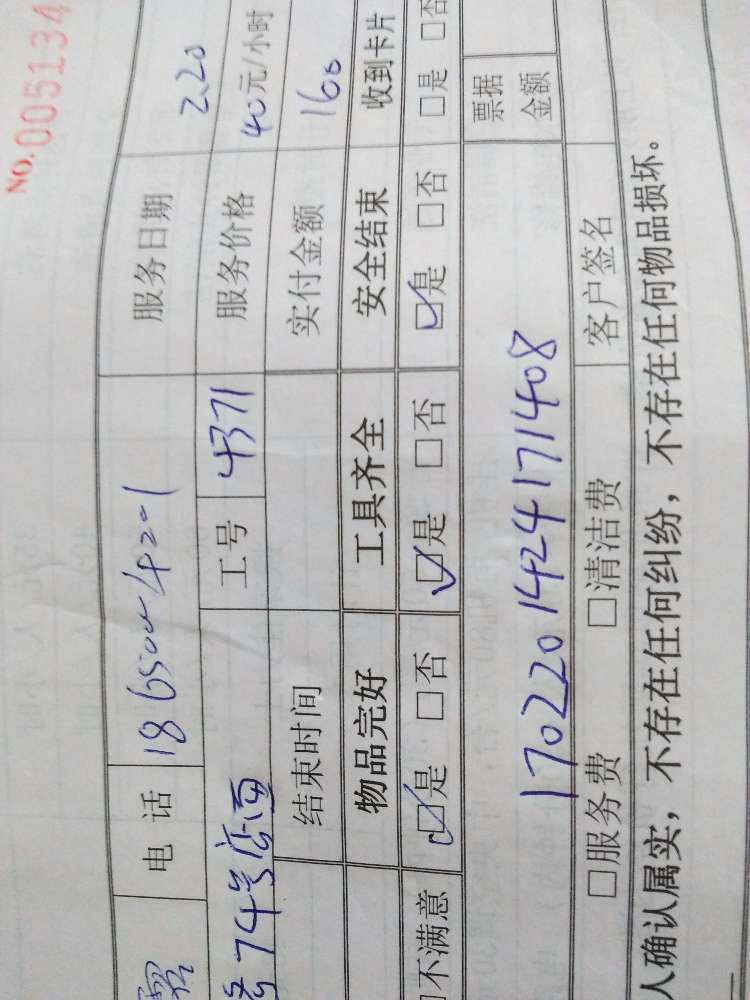 NO.005134
电话 服务日期 2.20
74号店面 工号 4371 服务价格 40元/小时
结束时间 实付金额 160
物品完好 工具齐全 安全结束 收到卡片
不满意 □是 □否 □是 □否 □是 □否 □是 □否
170220142417 1408 票据金额
□服务费 □清洁费 客户签名
人确认属实，不存在任何纠纷，不存在任何物品损坏。